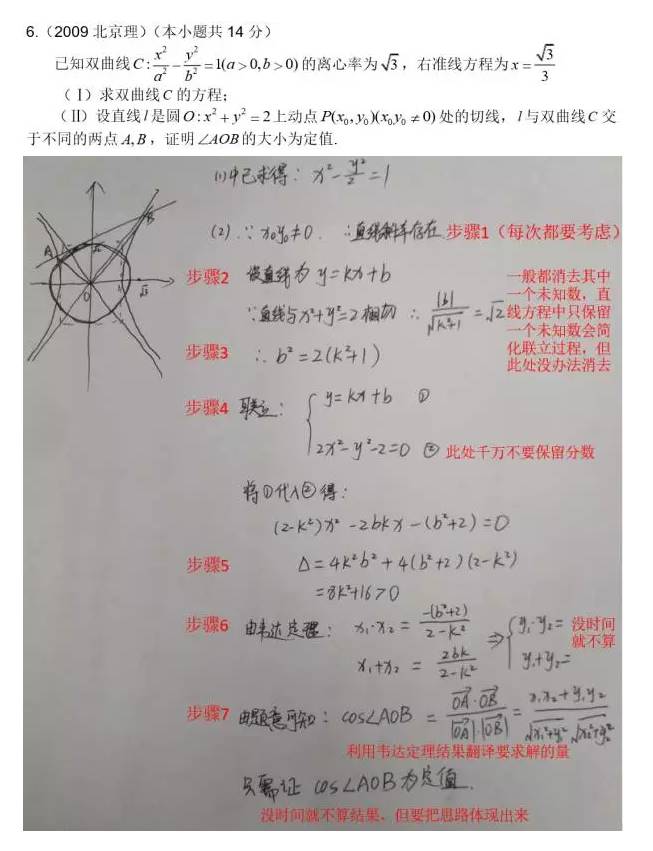 6.（2009 北京理）（本小题共 14 分）
已知双曲线 C : x²/a² − y²/b² = 1(a > 0, b > 0) 的离心率为√3，右准线方程为 x = √3/3
（Ⅰ）求双曲线 C 的方程；
（Ⅱ）设直线 l 是圆 O : x² + y² = 2 上动点 P(x₀, y₀)(x₀y₀ ≠ 0) 处的切线，l 与双曲线 C 交
于不同的两点 A, B，证明∠AOB 的大小为定值.
(1)中已求得：x² − y²/2 = 1
(2) ∵ x₀y₀≠0. ∴直线斜率存在 步骤1（每次都要考虑）
步骤2 设直线为 y = kx + b
∵直线与 x²+y²=2 相切 ∴ |b|/√(k²+1) = √2
一般都消去其中
一个未知数，直
线方程中只保留
一个未知数会简
化联立过程，但
此处没办法消去
步骤3 ∴ b² = 2(k²+1)
步骤4 联立：{ y = kx + b ①
2x² − y² − 2 = 0 ② 此处千万不要保留分数
将①代入②得：
(2−k²)x² − 2bkx − (b²+2) = 0
步骤5 Δ = 4k²b² + 4(b²+2)(2−k²)
= 8k²+16 > 0
步骤6 由韦达定理：x₁·x₂ = −(b²+2)/(2−k²) ⇒ { y₁·y₂ = 没时间
就不算
x₁+x₂ = 2bk/(2−k²) y₁+y₂ =
步骤7 由题意可知：cos∠AOB = OA·OB/|OA|·|OB| = (x₁x₂+y₁y₂)/(√(x₁²+y₁²) √(x₂²+y₂²))
利用韦达定理结果翻译要求解的量
只需证 cos∠AOB 为定值.
没时间就不算结果，但要把思路体现出来
A
B
O
√3